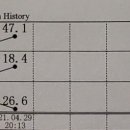 History
47.1
18.4
26.6
21.04.29
20:13